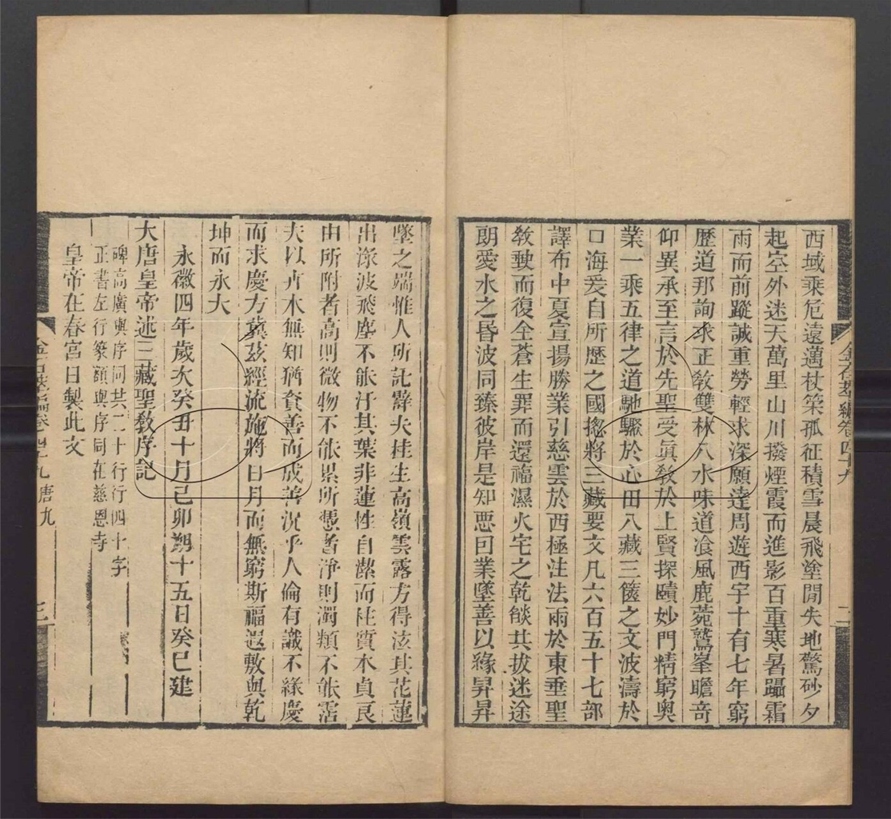 西域乘危遠邁杖策孤征積雪晨飛塗閒失地驚砂夕
起空外迷天萬里山川撥煙霞而進影百重寒暑躡霜
雨而前蹤誠重勞輕求深願達周遊西宇十有七年窮
歷道那詢求正教雙林八水味道飡風鹿菀鷲峯瞻奇
仰異承至言於先聖受眞教於上賢探賾妙門精窮奧
業一乘五律之道馳驟於心田八藏三篋之文波濤於
口海爰自所歷之國揔將三藏要文凡六百五十七部
譯布中夏宣揚勝業引慈雲於西極注法雨於東垂聖
教缺而復全蒼生罪而還福濕火宅之乾燄共拔迷途
朗愛水之昏波同臻彼岸是知惡因業墜善以緣昇昇
金石萃編卷四十九
二
墜之端惟人所託譬夫桂生高嶺雲露方得泫其花蓮
出淥波飛塵不能汙其葉非蓮性自潔而桂質本貞良
由所附者高則微物不能累所憑者淨則濁類不能霑
夫以卉木無知猶資善而成善況乎人倫有識不緣慶
而求慶方冀茲經流施將日月而無窮斯福遐敷與乾
坤而永大
永徽四年歲次癸丑十月己卯朔十五日癸巳建
大唐皇帝述三藏聖教序記
碑高廣與序同共二十行行四十字
正書左行篆額與序同在慈恩寺
皇帝在春宮日製此文
金石萃編卷四十九 唐九
三